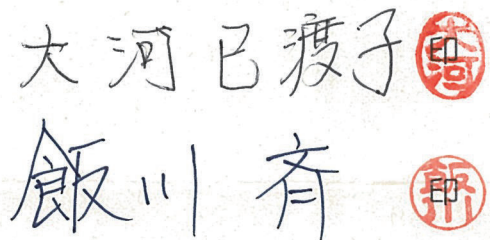 大河已渡子 印
飯川 斉 印